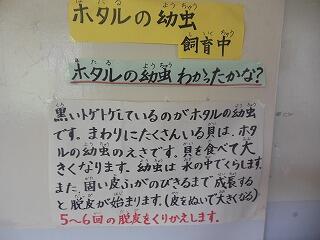 ホタルの幼虫
飼育中
ホタルの幼虫わかったかな?
黒いトゲトゲしているのがホタルの幼虫
です。まわりにたくさんいる貝は、ホタ
ルの幼虫のえさです。貝を食べて大
きくなります。幼虫は水の中でくらします。
また、固い皮ふがのびきるまで成長する
と脱皮が始まります。(皮をぬいで大きくなる)
5〜6回の脱皮をくりかえします。